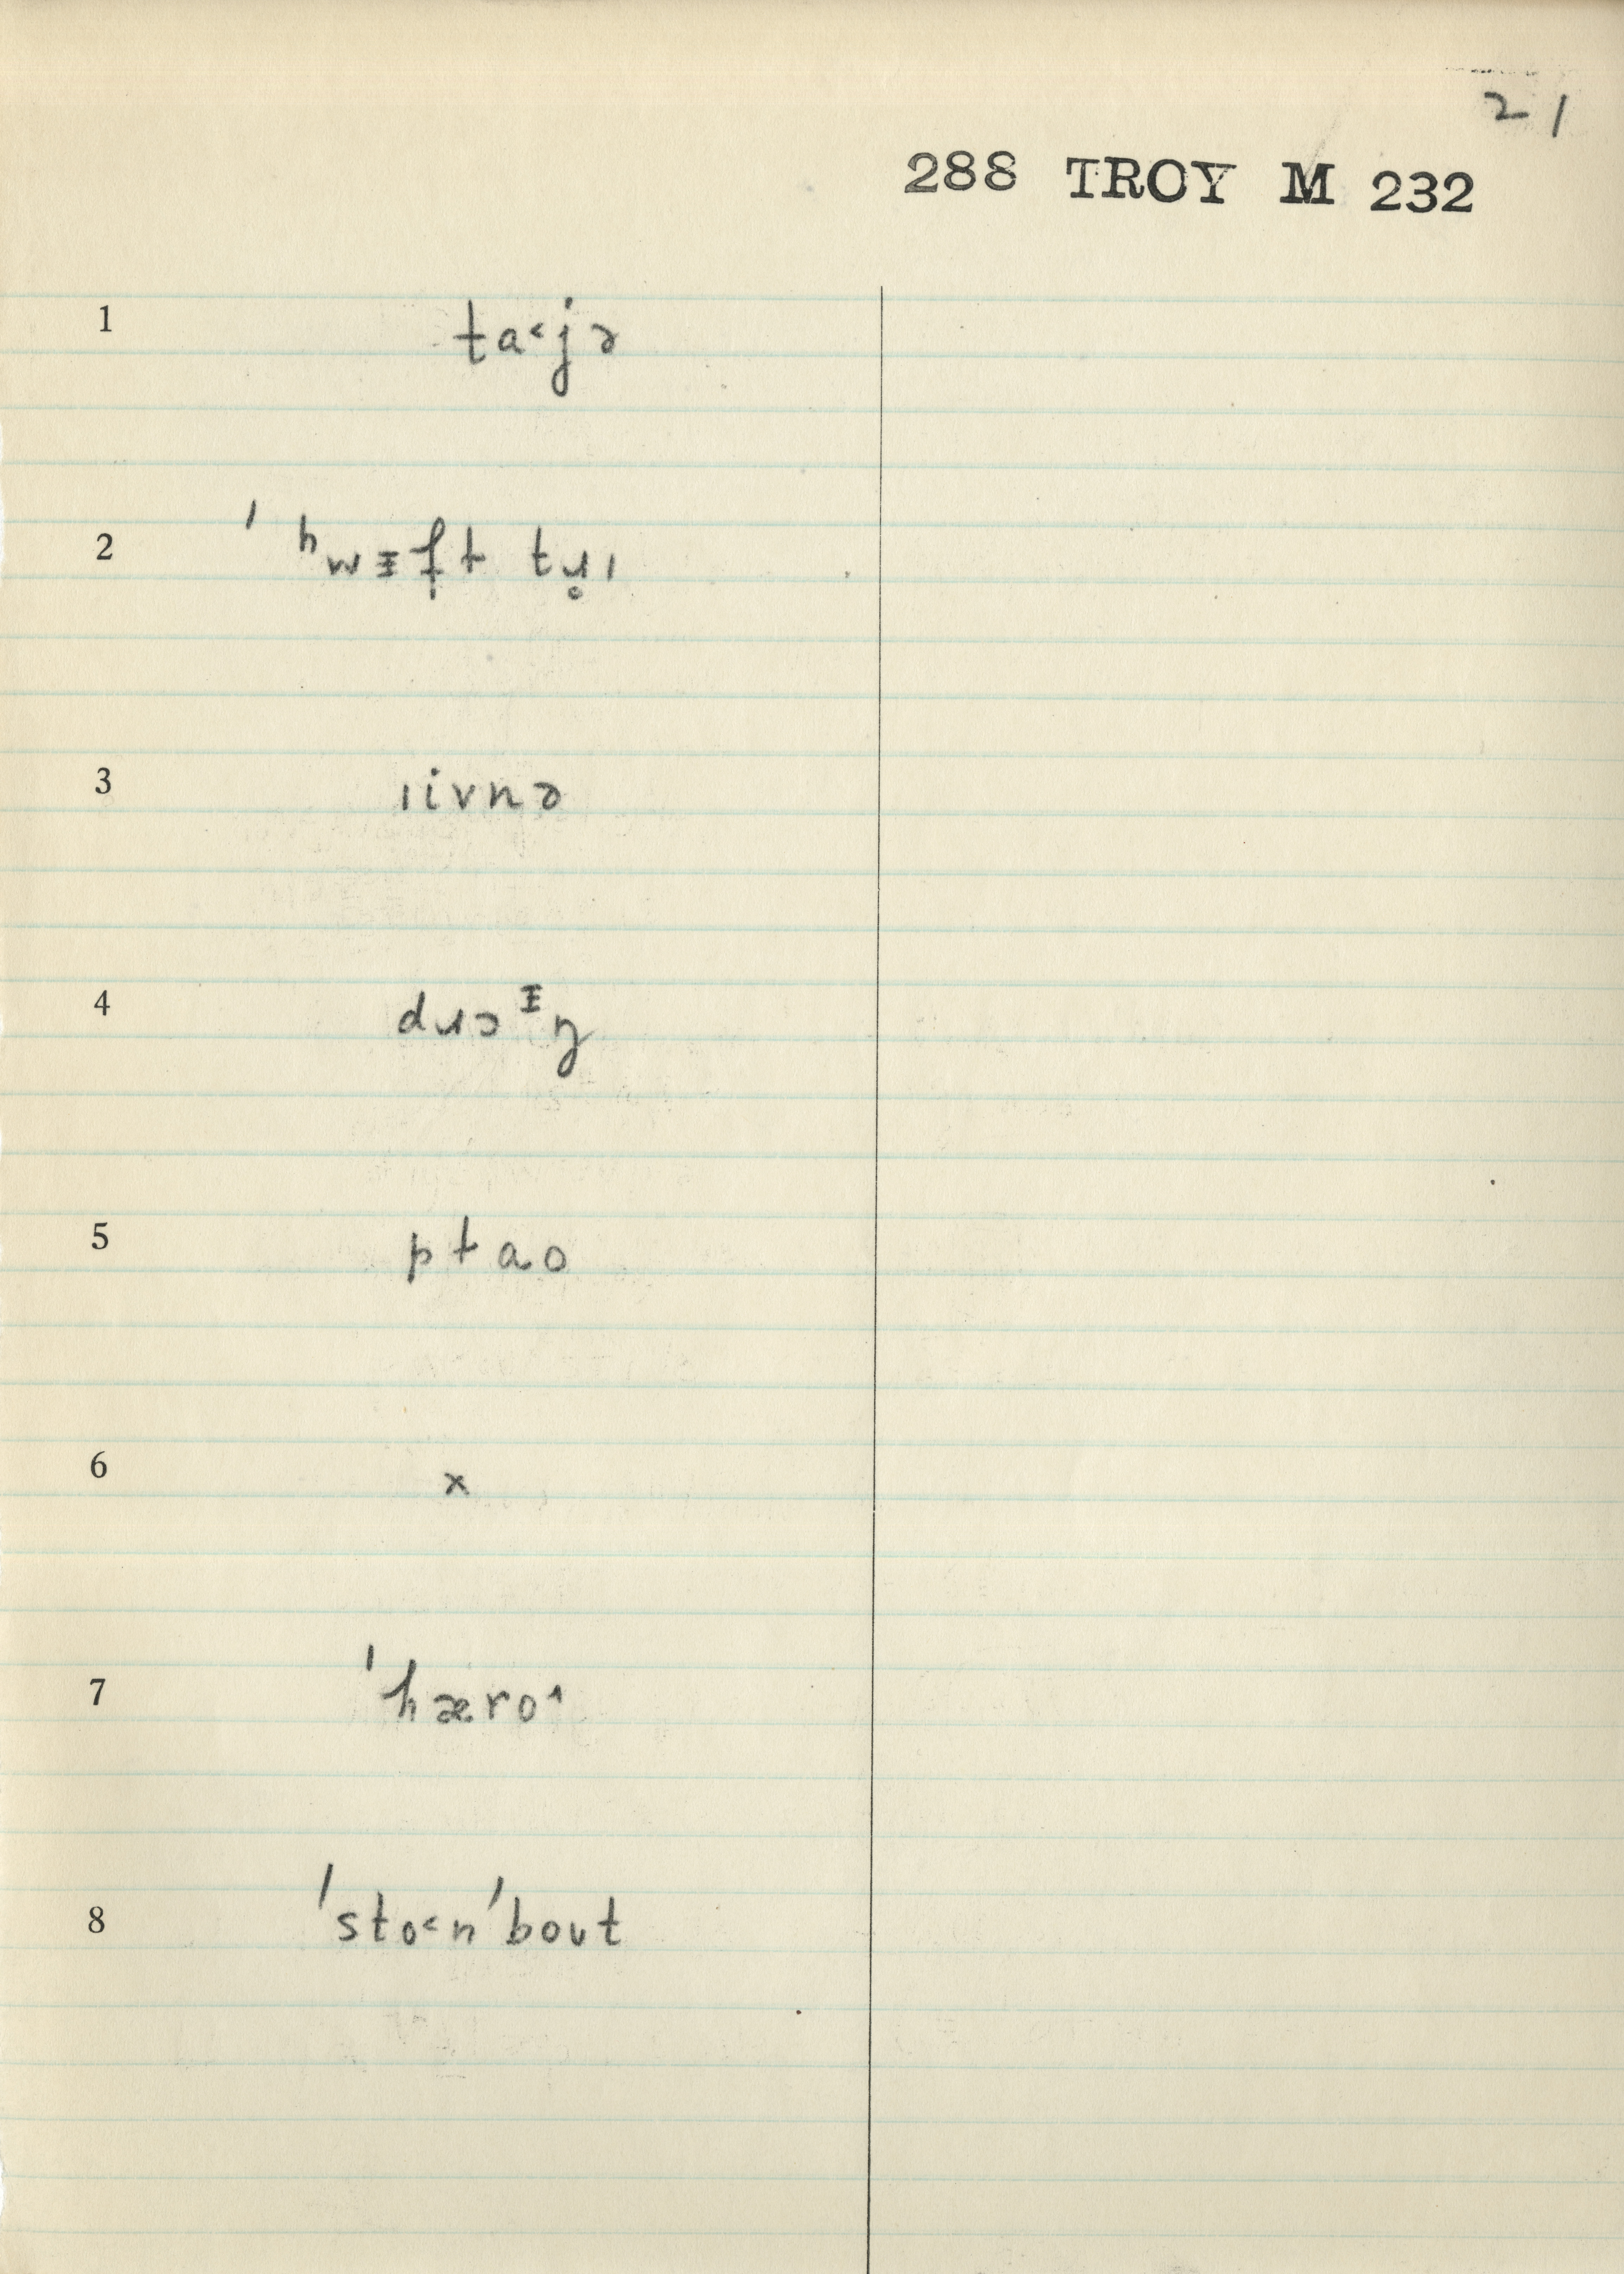 21
288 TROY M 232
1 ta˂jə
2 ˈʰwᵻf̟t tɹ̥ı
3 ıivnə
4 dɹɔᵻŋ
5 ptao
6 x
7 ˈhæro˄
8 ˈsto˂nˈbout